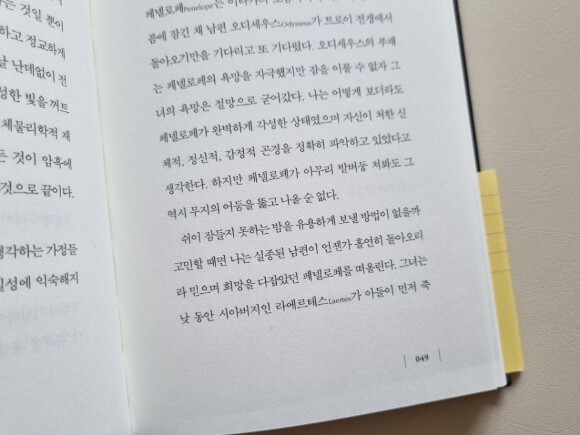 는 것일 뿐이
하고 정교하게
날 난데없이 전
성한 빛을 꺼트
체물리학적 재
든 것이 암흑에
것으로 끝이다.
생각하는 가정들
일성에 익숙해지
페넬로페Penelope는
쫌에 잠긴 채 남편 오디세우스Odysseus가 트로이 전쟁에서
돌아오기만을 기다리고 또 기다렸다. 오디세우스의 부재
는 페넬로페의 욕망을 자극했지만 잠을 이룰 수 없자 그
녀의 욕망은 절망으로 굳어갔다. 나는 어떻게 보더라도
페넬로페가 완벽하게 각성한 상태였으며 자신이 처한 신
체적, 정신적, 감정적 곤경을 정확히 파악하고 있었다고
생각한다. 하지만 페넬로페가 아무리 발버둥 쳐봐도 그
역시 무지의 어둠을 뚫고 나올 순 없다.
쉬이 잠들지 못하는 밤을 유용하게 보낼 방법이 없을까
고민할 때면 나는 실종된 남편이 언젠가 홀연히 돌아오리
라 믿으며 희망을 다잡았던 페넬로페를 떠올린다. 그녀는
낮 동안 시아버지인 라에르테스Laertes가 아들이 먼저 죽
049